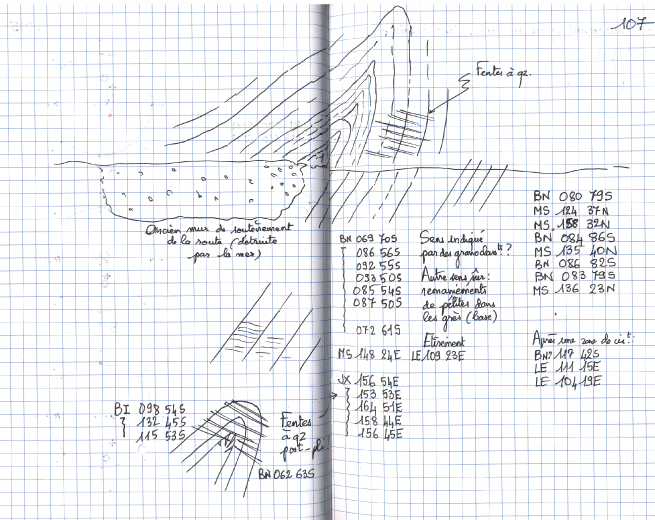 107
Fentes à qz.
Ancien mur de soutènement
de la route (détruite
par la mer)
BN 069 70S
086 56S
092 55S
093 50S
085 54S
087 50S
072 61S
MS 148 24E
Sens indiqué
par des ?
Autre sens sûr:
remaniements
de pélites dans
les grès (base)
Etirement
LE 109 23E
BN 080 79S
MS 124 37N
MS 158 32N
BN 084 86S
MS 135 40N
BN 086 82S
BN 083 79S
MS 136 23N
Après une zone de cist:
BN? 117 42S
LE 111 15E
LE 104 19E
JX 156 54E
153 53E
164 51E
158 44E
156 45E
BI 098 54S
132 45S
115 53S
Fentes
à qz
post-pli
BN 062 63S